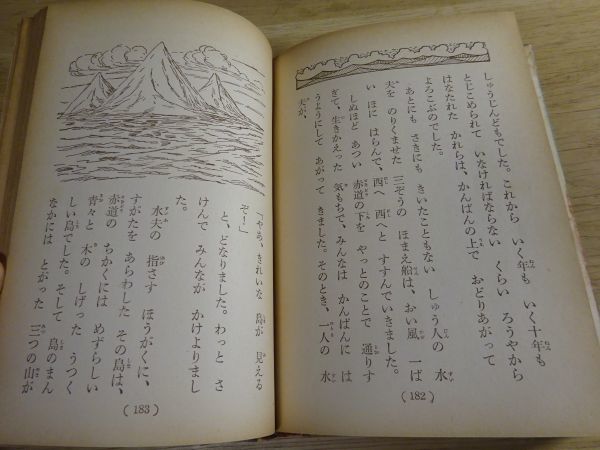 しゅうじんどもでした。これから いく年も いく十年も
とじこめられて いなければならない くらい ろうやから
はなたれた かれらは、かんばんの上で おどりあがって
よろこぶのでした。
あとにも さきにも きいたこともない しゅう人の 水
夫を のりくませた 三ぞうの ほまえ船は、おい風 一ぱ
い ほに はらんで、西へ 西へと すすんでいきました。
しぬほど あつい 赤道の下を やっとのことで 通りす
ぎて、生きかえった 気もちで、みんなは かんばんに は
うようにして あがって きました。そのとき、一人の 水
夫が、
(182)
「やあ、きれいな 島が 見える
ぞ！」
と、どなりました。わっと さ
けんで みんなが かけよりまし
た。
水夫の 指さす ほうがくに、
すがたを あらわした その島は、
赤道の ちかくには めずらしい
青々と 木の しげった うつく
しい島でした。そして 島のまん
なかには とがった 三つの山が
(183)